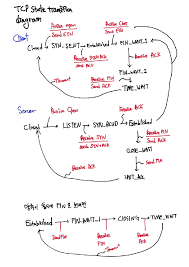 TCP State transition
diagram
Client
Active open
Send SYN
Active Close
Send FIN
Closed
SYN_SENT
Established
FIN_WAIT_1
Receive SYN+ACK
Send ACK
Receive FIN
Send ACK
Receive ACK
FIN_WAIT_2
"Timeout"
TIME_WAIT
Server
Passive Open
Receive ACK
Closed
LISTEN
SYN_RCVD
Established
Receive SYN
Send SYN+ACK
Receive FIN
Send ACK
CLOSE_WAIT
Send FIN
Receive ACK
LAST_ACK
FIN
Established
FIN_WAIT_1
CLOSING
TIME_WAIT
Send FIN
Receive FIN
Receive ACK
"Timeout"